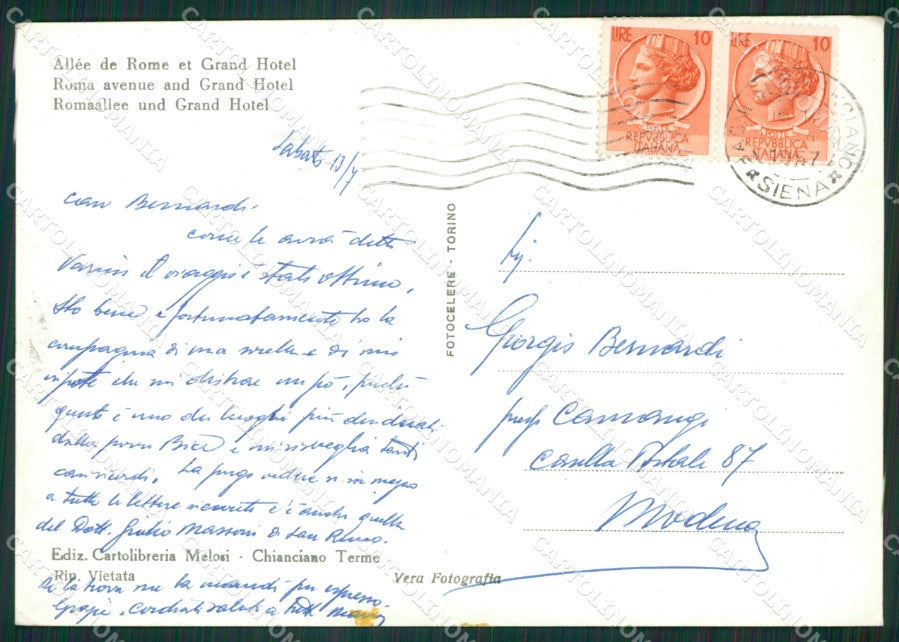 Allée de Rome et Grand Hotel
Roma avenue and Grand Hotel
Romaallee und Grand Hotel
LIRE 10
REPVBBLICA
ITALIANA
LIRE 10
POSTE
REPVBBLICA
ITALIANA
SIENA
Sabato 13/7
Caro Bernardi.
come le avrà detto
il viaggio è stato ottimo,
Sto bene e fortunatamente ho la
compagnia di mia sorella e di mio
nipote che mi distrae un pò, perché
questo è uno dei luoghi più desiderati
dalla povera Bice e mi risveglia tanti
cari ricordi. La prego vedere se in mezzo
a tutte le lettere ricevute c'è anche quella
del Dott. Giulio Massoni di San Remo.
Se la trova me la mandi per espresso.
Grazie. Cordiali saluti a tutti
FOTOCELERE - TORINO
Sig.
Giorgio Bernardi
Casella Postale 87
Modena
Ediz. Cartolibreria Melosi - Chianciano Terme
Rip. Vietata
Vera Fotografia
CARTOLINOMANIA